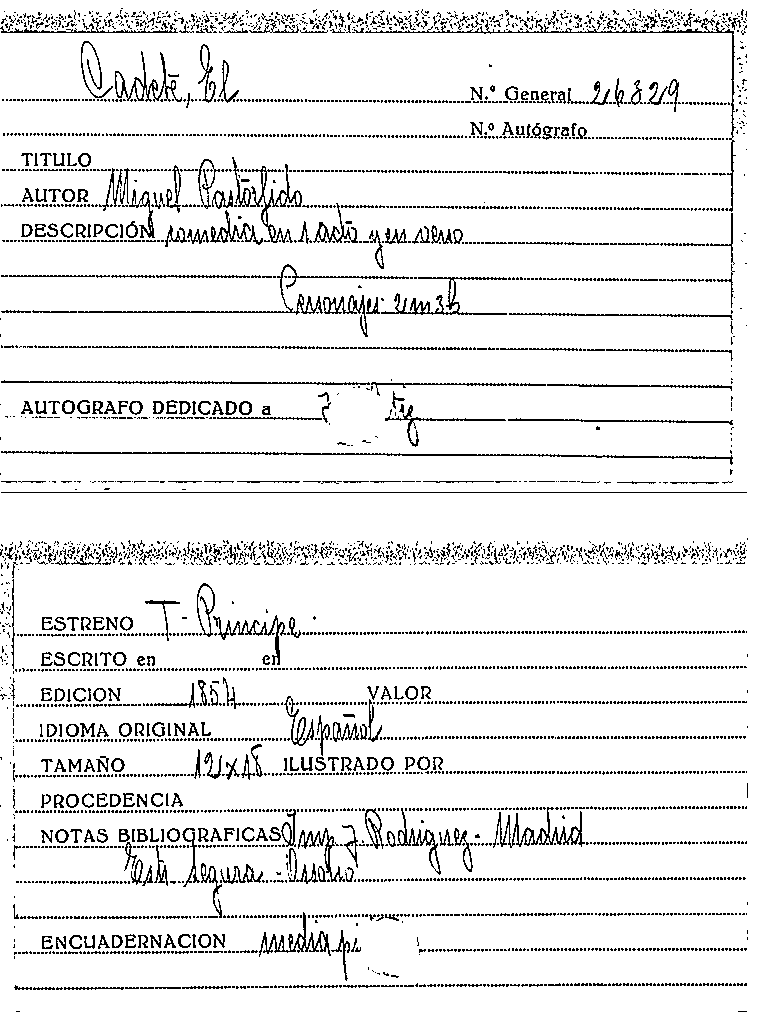 Cadete, El
N.º General 26329
N.º Autógrafo
TITULO
AUTOR Miguel Pastorfido
DESCRIPCIÓN comedia en 1 acto y en verso
Personajes 2m3h
AUTOGRAFO DEDICADO a
ESTRENO T- Principe
ESCRITO en en
EDICION 1854 VALOR
IDIOMA ORIGINAL Español
TAMAÑO 12x18 ILUSTRADO POR
PROCEDENCIA
NOTAS BIBLIOGRAFICAS Imp J. Rodriguez - Madrid
Segura -
ENCUADERNACION media pi